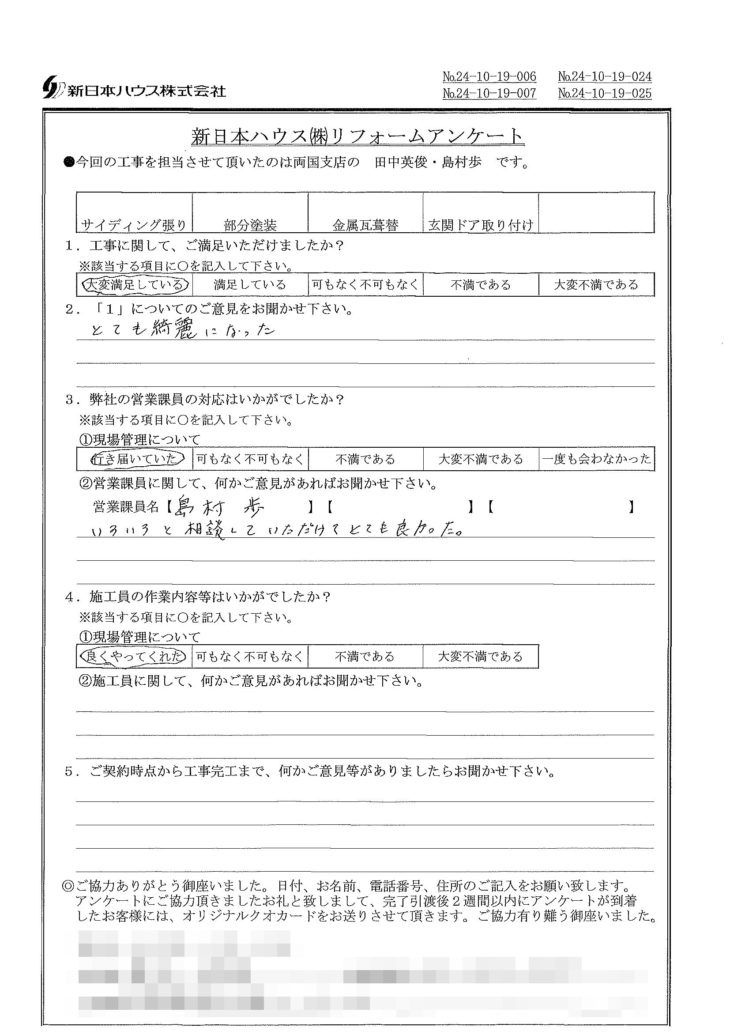 №24-10-19-006 №24-10-19-024
新日本ハウス株式会社 №24-10-19-007 №24-10-19-025
新日本ハウス㈱リフォームアンケート
●今回の工事を担当させて頂いたのは両国支店の 田中英俊・島村歩 です。
サイディング張り 部分塗装 金属瓦葺替 玄関ドア取り付け
1．工事に関して、ご満足いただけましたか？
※該当する項目に○を記入して下さい。
大変満足している 満足している 可もなく不可もなく 不満である 大変不満である
2．「1」についてのご意見をお聞かせ下さい。
とても綺麗になった
3．弊社の営業課員の対応はいかがでしたか？
※該当する項目に○を記入して下さい。
①現場管理について
行き届いていた 可もなく不可もなく 不満である 大変不満である 一度も会わなかった
②営業課員に関して、何かご意見があればお聞かせ下さい。
営業課員名【島村 歩 】【 】【 】
いろいろと相談していただけてとても良かった。
4．施工員の作業内容等はいかがでしたか？
※該当する項目に○を記入して下さい。
①現場管理について
良くやってくれた 可もなく不可もなく 不満である 大変不満である
②施工員に関して、何かご意見があればお聞かせ下さい。
5．ご契約時点から工事完工まで、何かご意見等がありましたらお聞かせ下さい。
◎ご協力ありがとう御座いました。日付、お名前、電話番号、住所のご記入をお願い致します。
アンケートにご協力頂きましたお礼と致しまして、完了引渡後2週間以内にアンケートが到着
したお客様には、オリジナルクオカードをお送りさせて頂きます。ご協力有り難う御座いました。